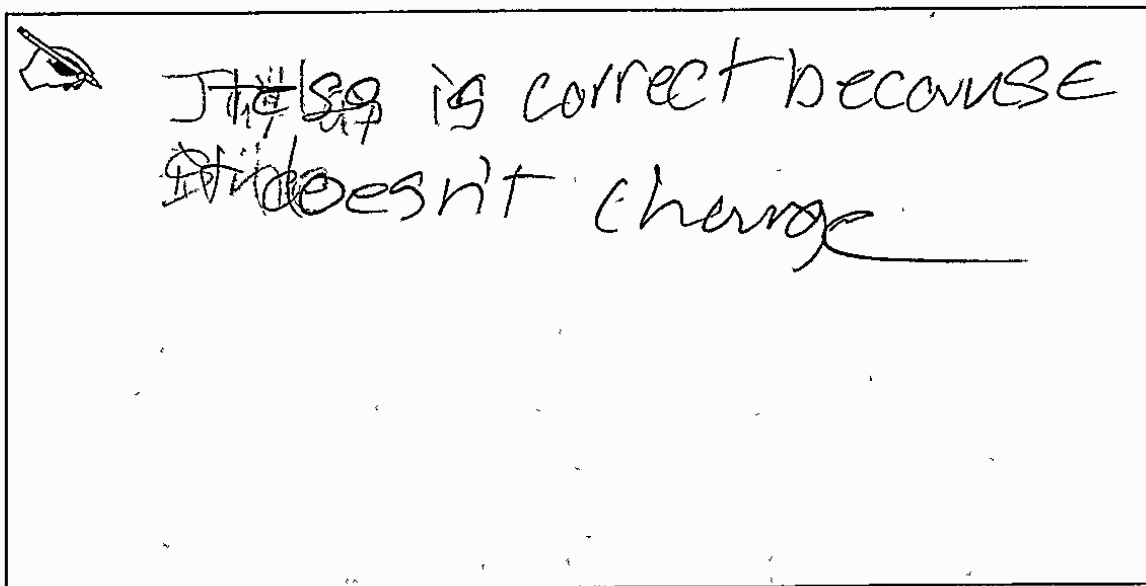 is correct because
doesn't change